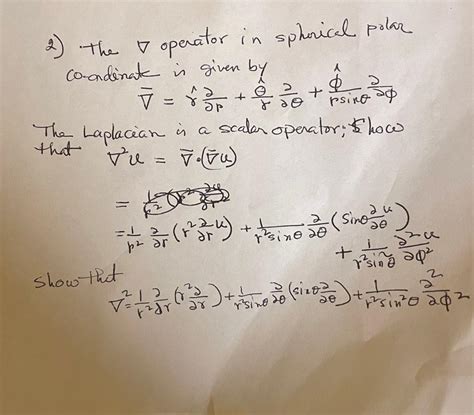 2) The ∇ operator in spherical polar
co-ordinate is given by
∇̄ = r̂ ∂/∂r + θ̂/r ∂/∂θ + φ̂/(r sinθ) ∂/∂φ
The Laplacian is a scalar operator; Show
that ∇²u = ∇̄·(∇̄u)
=
= 1/r² ∂/∂r (r² ∂/∂r u) + 1/(r² sinθ) ∂/∂θ (Sinθ ∂u/∂θ)
+ 1/(r² sin²θ) ∂²u/∂φ²
Show that
∇² = 1/r² ∂/∂r (r² ∂/∂r) + 1/(r² sinθ) ∂/∂θ (sinθ ∂/∂θ) + 1/(r² sin²θ) ∂²/∂φ²